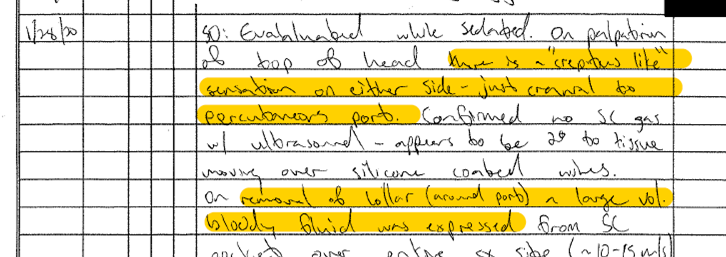 1/28/20 SO: Evalaluated while sedated. On palpation
of top of head there is a "crepitus like"
sensation on either side - just cranial to
percutaneous port. Confirmed no SC gas
w/ ultrasound - appears to be 2° to tissue
moving over silicone coated wires.
On removal of collar (around port) a large vol.
bloody fluid was expressed from SC
pockets over entire sx side (~10-15 mls)